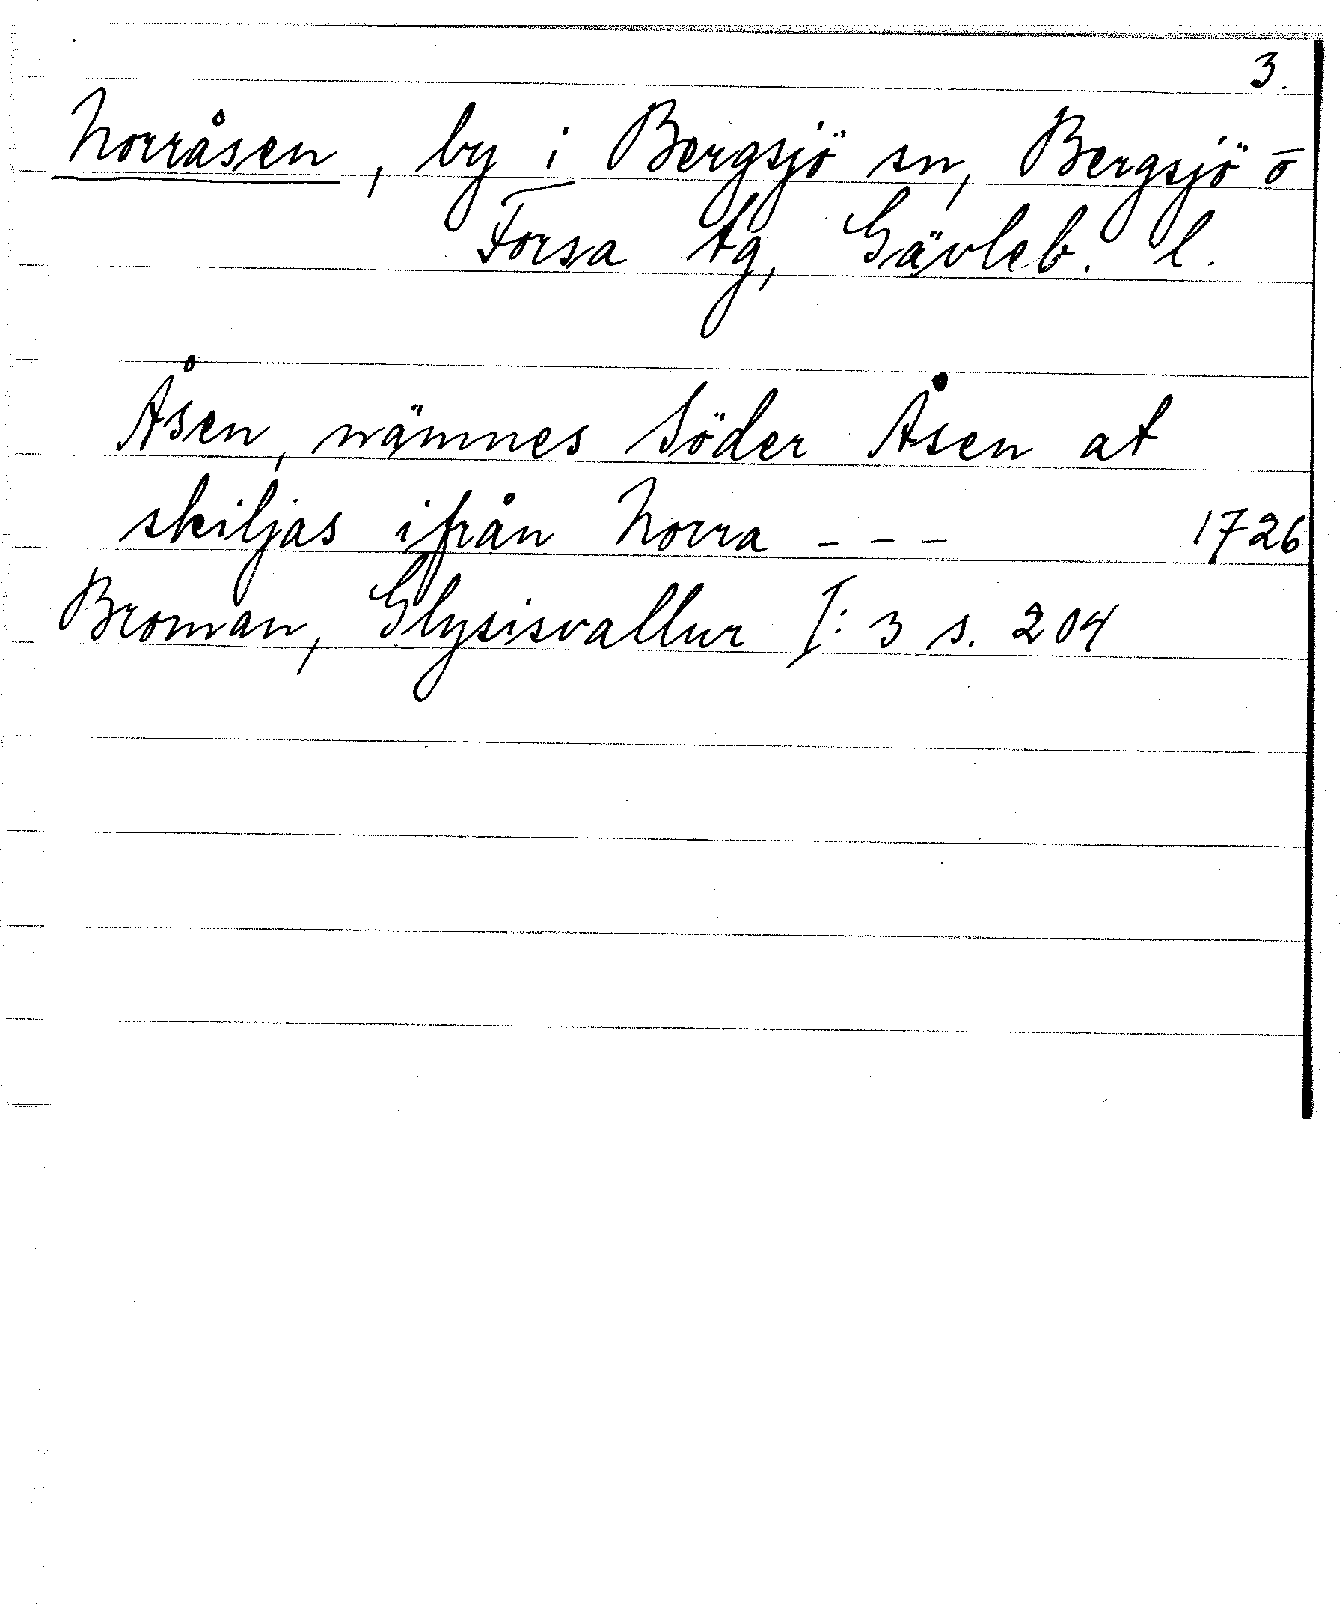 3.
Norråsen, by i Bergsjö sn, Bergsjö o
Forsa tg, Gävleb. l.
Åsen, nämnes Söder Åsen at
skiljas ifrån Norra - - - 1726
Broman, Glysisvallur I: 3 s. 204